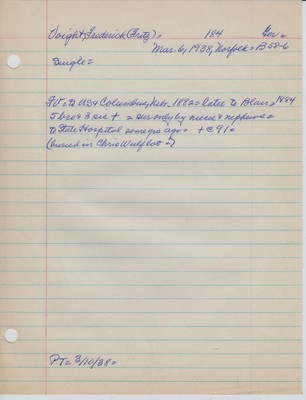 Voight, Frederick (Fritz) = 184 Ger =
Mar. 6, 1938, Norfolk = B 58-6
Single =
FV = to US & Columbus, Nebr. 1882 = later to Blair = 1884
5 bro & 3 sis + = sur only by nieces & nephews =
to State Hospital some ago = + @ 91 =
(buried in Chris Wulf lot =)
PT = 3/10/38 =